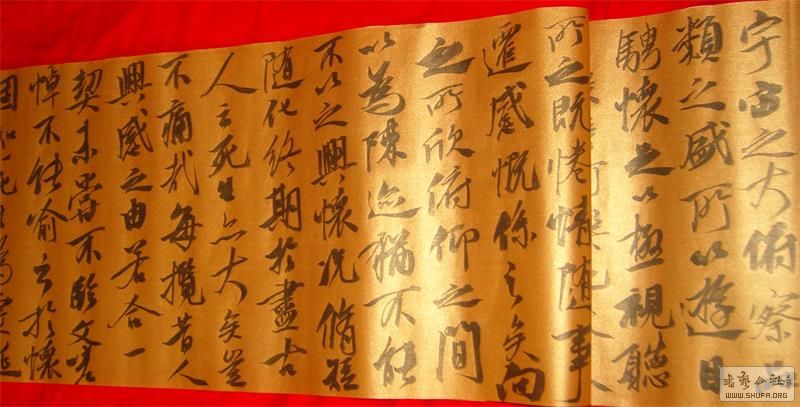 宇宙之大俯察
類之盛所以遊目
騁懷足以極視聽
所之既惓情隨事
遷感慨係之矣向
之所欣俯仰之間
以為陳迹猶不能
不以之興懷況脩短
隨化終期於盡古
人云死生亦大矣豈
不痛哉每攬昔人
興感之由若合一
契未嘗不臨文嗟
悼不能喻之於懷
固知一死生為虛誕
书艺公社
WWW.SHUFA.ORG